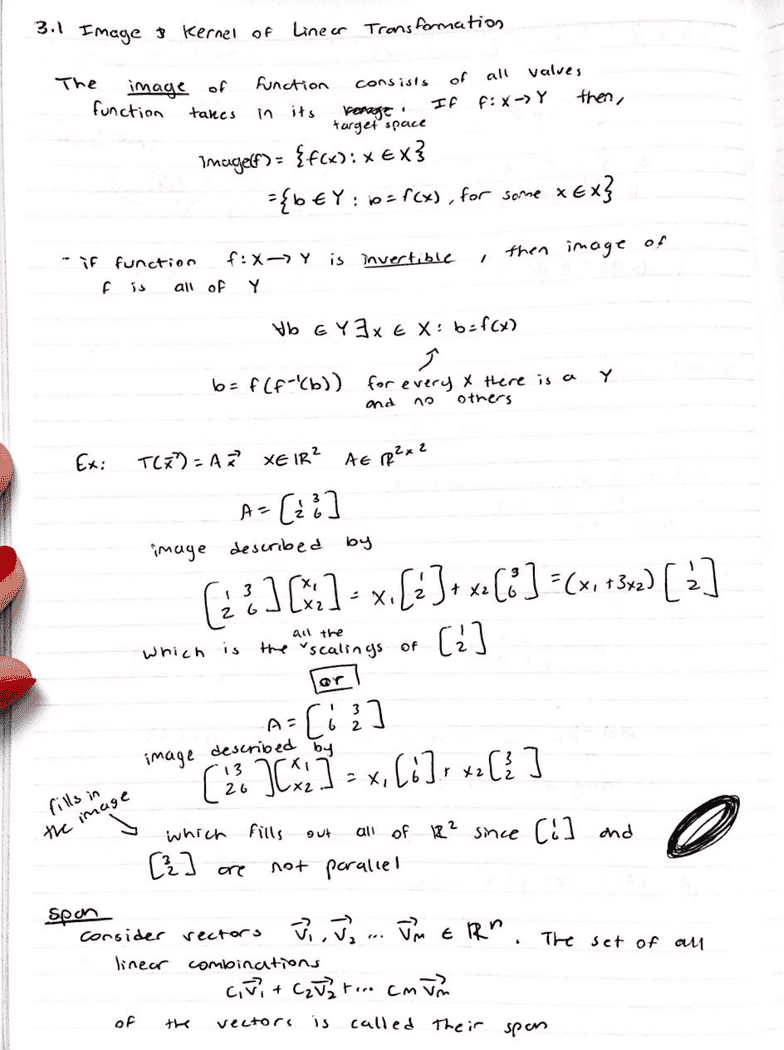 3.1 Image & Kernel of Linear Transformation
The image of function consists of all values
function takes in its range. If f: X → Y then,
target space
Image(f) = {f(x) : x ∈ X}
= {b ∈ Y : b = f(x), for some x ∈ X}
- if function f: X → Y is invertible, then image of
f is all of Y
∀b ∈ Y ∃ x ∈ X : b = f(x)
b = f(f⁻¹(b)) for every x there is a Y
and no others
Ex: T(x⃗) = A x⃗ x ∈ ℝ² A ∈ ℝ²ˣ²
A = [1 3; 2 6]
image described by
[1 3; 2 6] [x₁; x₂] = x₁ [1; 2] + x₂ [3; 6] = (x₁ + 3x₂) [1; 2]
which is the all the scalings of [1; 2]
or
A = [1 3; 6 2]
image described by
[1 3; 2 6] [x₁; x₂] = x₁ [1; 6] + x₂ [3; 2]
fills in
the image
which fills out all of ℝ² since [1; 6] and
[3; 2] are not parallel
Span
Consider vectors v⃗₁, v⃗₂ ... v⃗m ∈ ℝⁿ. The set of all
linear combinations
c₁v⃗₁ + c₂v⃗₂ + ... cm v⃗m
of the vectors is called their span